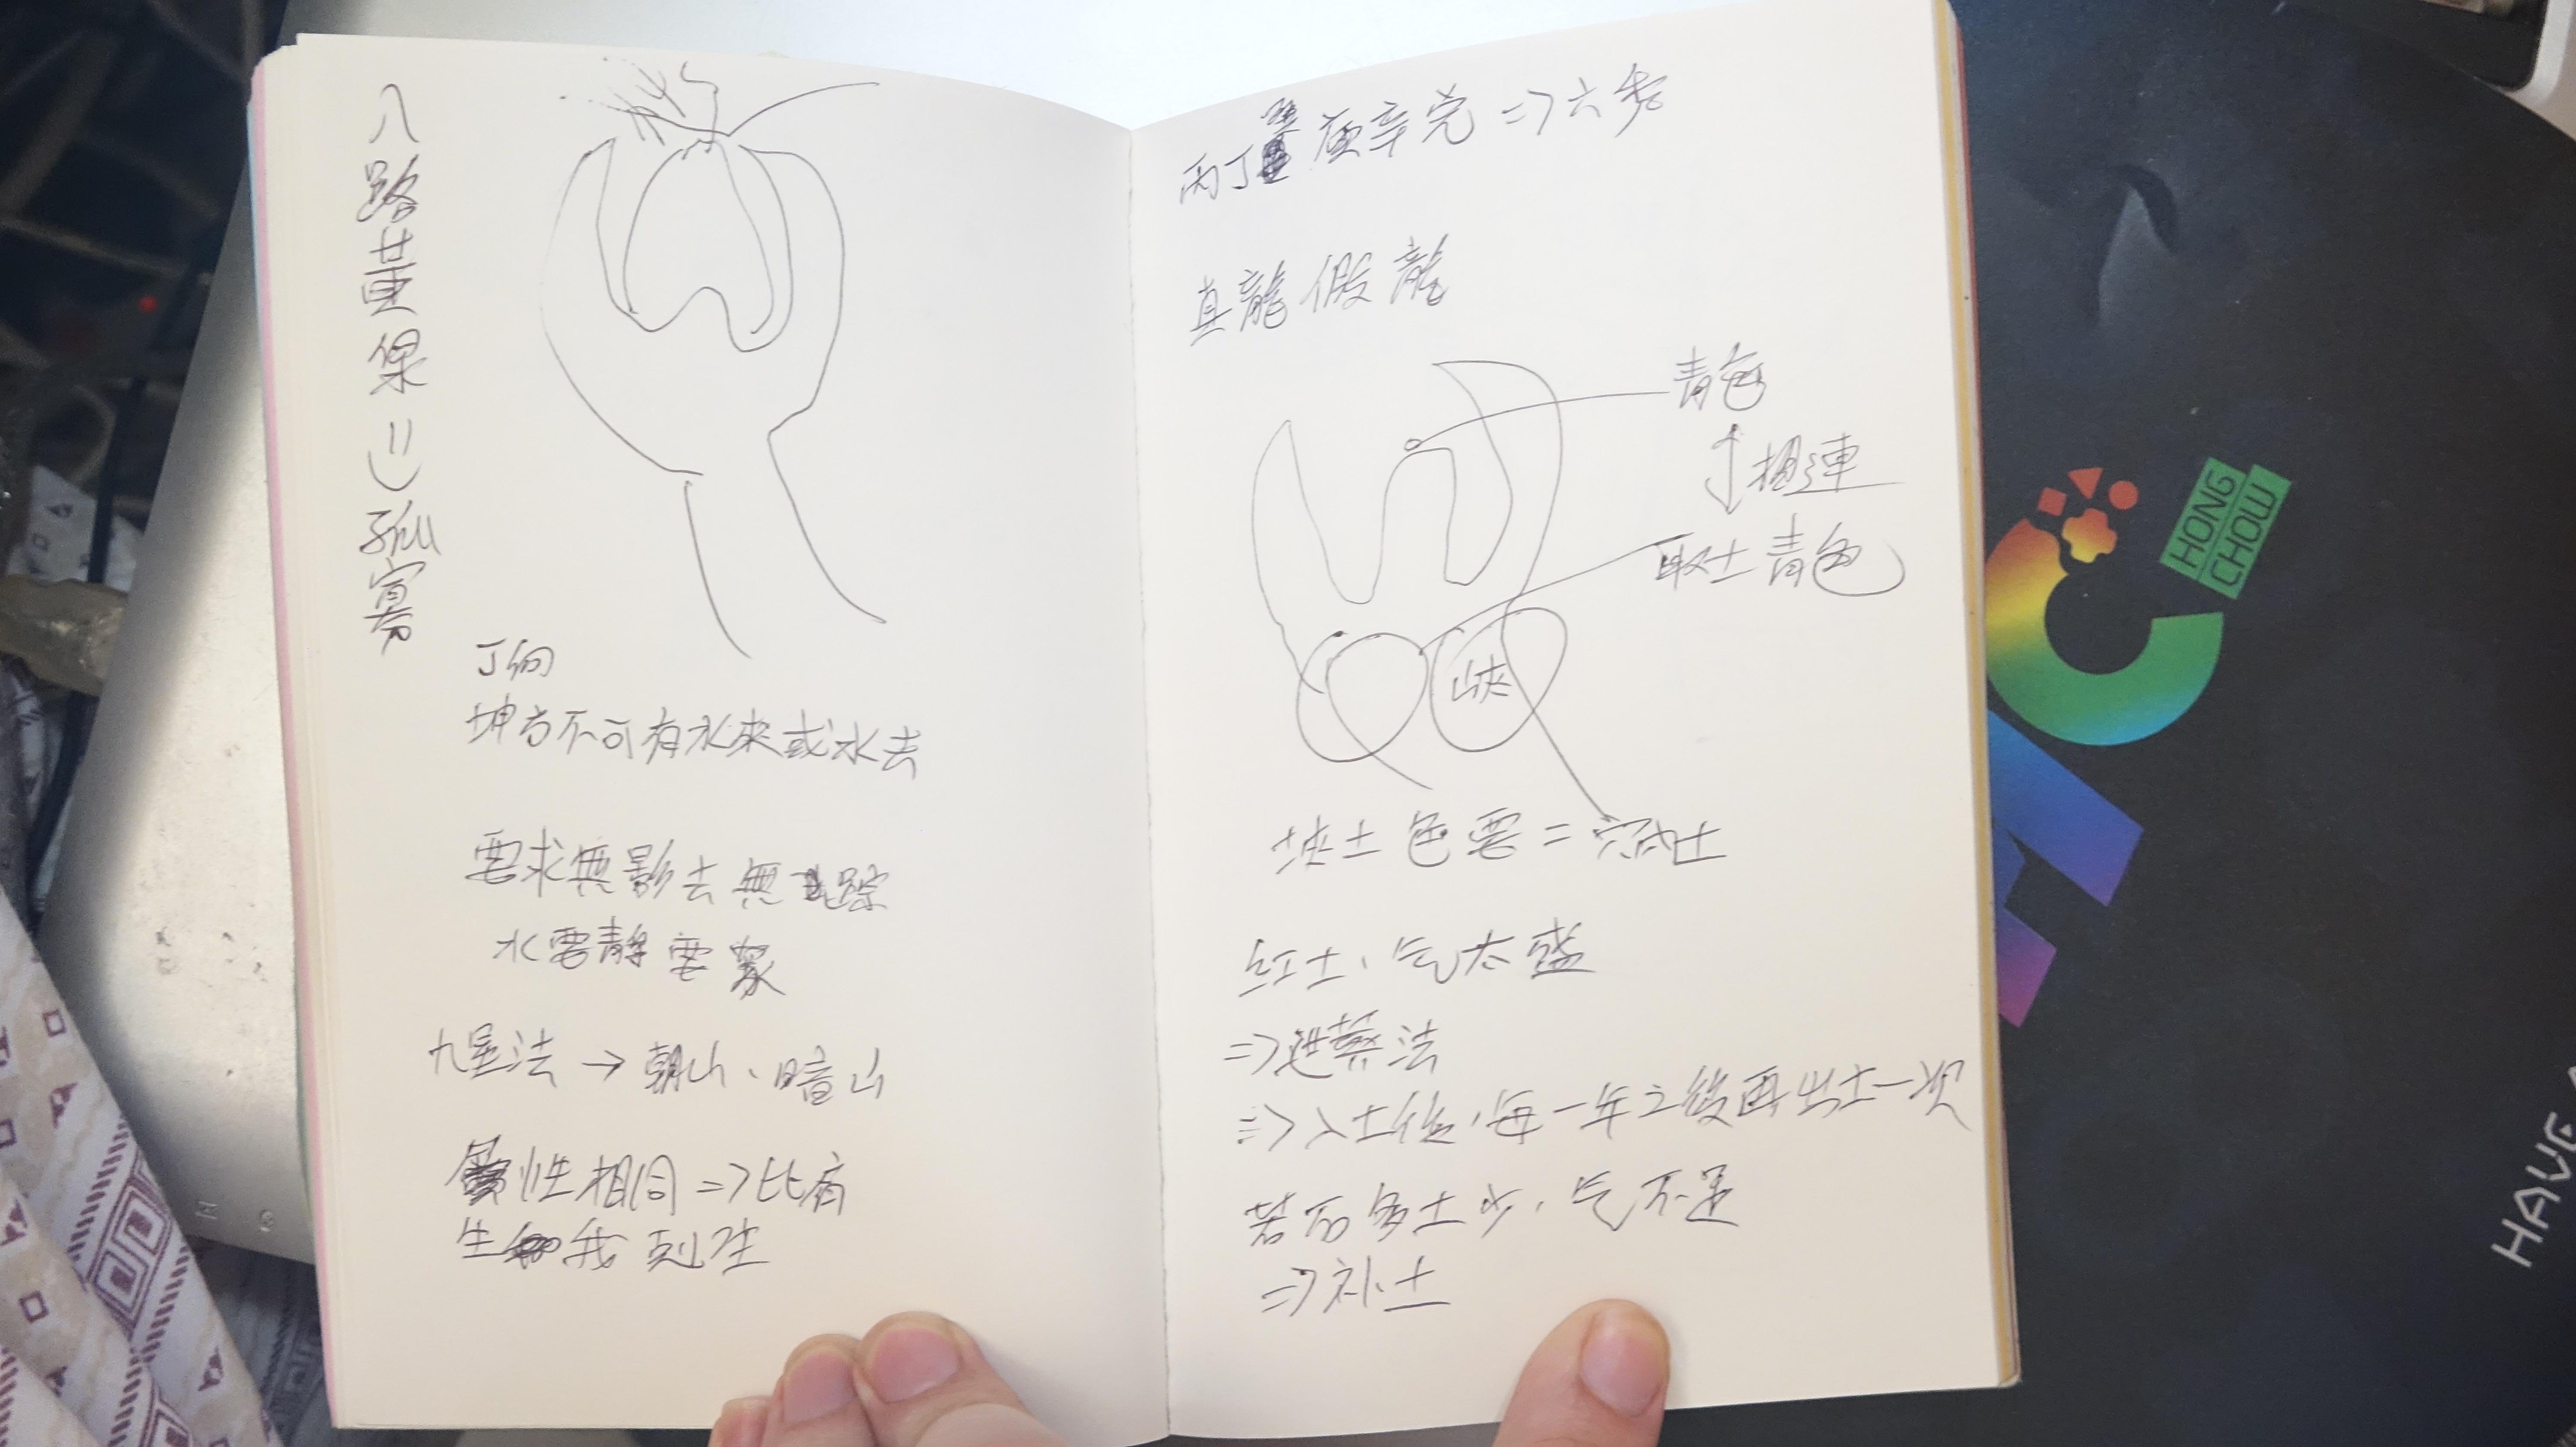 八路黃保＝孤寡
丁向
坤方不可有水來或水去
要求無影去無踪
水要靜要聚
九星法→朝山、暗山
屬性相同⇒比肩
生我剋生
丙丁庚辛兌⇒六秀
真龍假龍
青色
相連
取土青色
峽
峽土色要＝穴內土
紅土、气太盛
⇒進葬法
⇒入土後，每一年之後再出土一次
若石多土少，气不足
⇒补土
HONG
CHOW
HAVE